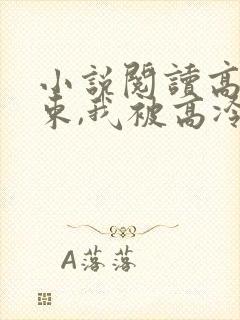 小說閱讀高
束,我被高冷
A落落